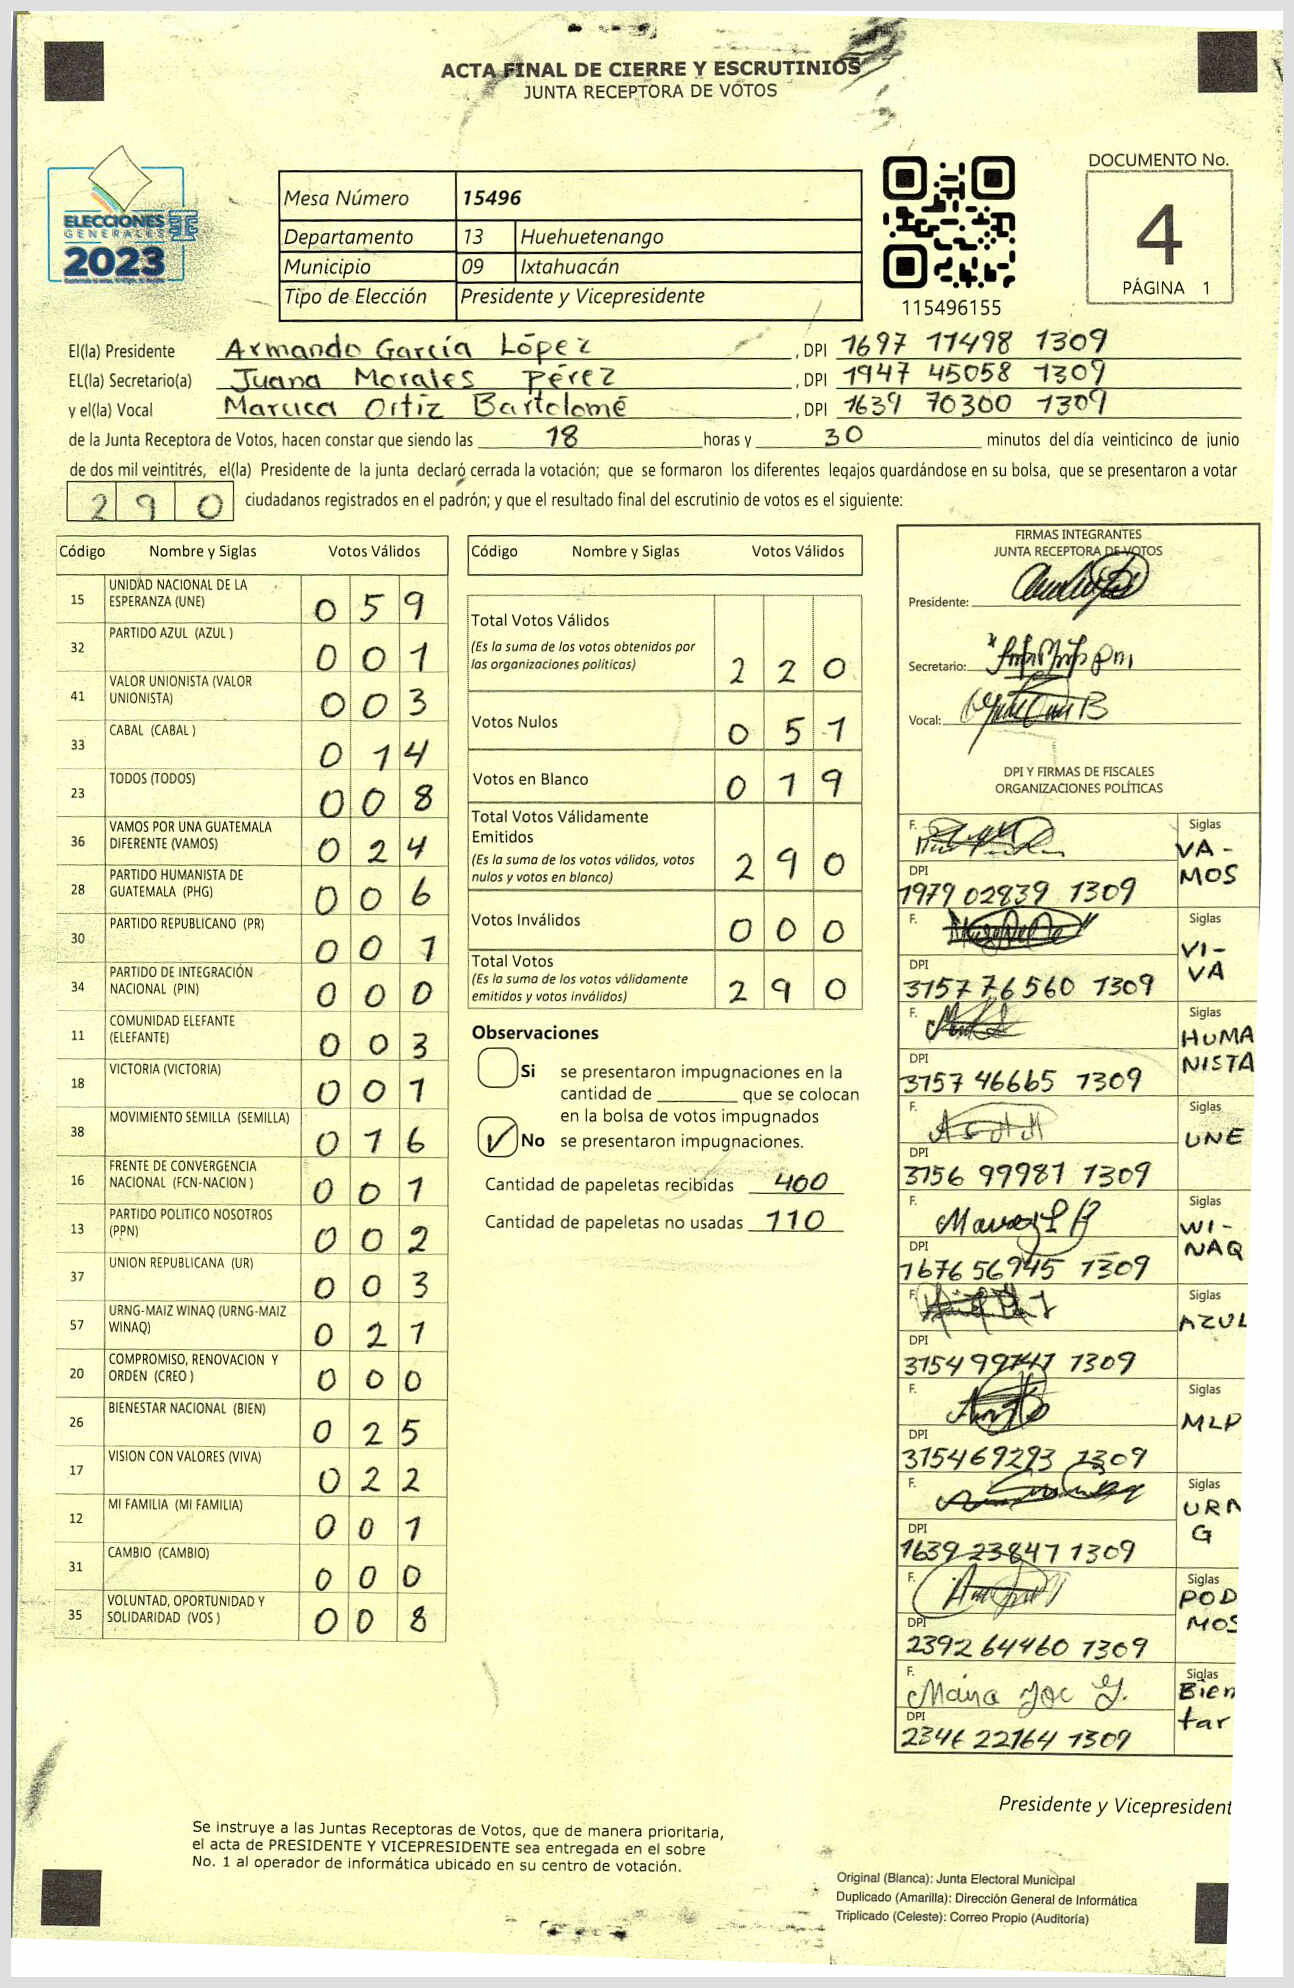 ACTA FINAL DE CIERRE Y ESCRUTINIOS
JUNTA RECEPTORA DE VOTOS
ELECCIONES
GENERALES
2023
Mesa Número 15496
Departamento 13 Huehuetenango
Municipio 09 Ixtahuacán
Tipo de Elección Presidente y Vicepresidente
115496155
DOCUMENTO No.
4
PÁGINA 1
El(la) Presidente Armando García López , DPI 1697 11498 1309
EL(la) Secretario(a) Juana Morales Pérez , DPI 1947 45058 1309
y el(la) Vocal Maruca Ortiz Bartolomé , DPI 1639 70300 1309
de la Junta Receptora de Votos, hacen constar que siendo las 18 horas y 30 minutos del día veinticinco de junio
de dos mil veintitrés, el(la) Presidente de la junta declaró cerrada la votación; que se formaron los diferentes legajos quardándose en su bolsa, que se presentaron a votar
290 ciudadanos registrados en el padrón; y que el resultado final del escrutinio de votos es el siguiente:
Código Nombre y Siglas Votos Válidos
15 UNIDAD NACIONAL DE LA ESPERANZA (UNE) 059
32 PARTIDO AZUL (AZUL ) 001
41 VALOR UNIONISTA (VALOR UNIONISTA) 003
33 CABAL (CABAL ) 014
23 TODOS (TODOS) 008
36 VAMOS POR UNA GUATEMALA DIFERENTE (VAMOS) 024
28 PARTIDO HUMANISTA DE GUATEMALA (PHG) 006
30 PARTIDO REPUBLICANO (PR) 001
34 PARTIDO DE INTEGRACIÓN NACIONAL (PIN) 000
11 COMUNIDAD ELEFANTE (ELEFANTE) 003
18 VICTORIA (VICTORIA) 001
38 MOVIMIENTO SEMILLA (SEMILLA) 016
16 FRENTE DE CONVERGENCIA NACIONAL (FCN-NACION ) 001
13 PARTIDO POLITICO NOSOTROS (PPN) 002
37 UNION REPUBLICANA (UR) 003
57 URNG-MAIZ WINAQ (URNG-MAIZ WINAQ) 021
20 COMPROMISO, RENOVACION Y ORDEN (CREO ) 000
26 BIENESTAR NACIONAL (BIEN) 025
17 VISION CON VALORES (VIVA) 022
12 MI FAMILIA (MI FAMILIA) 001
31 CAMBIO (CAMBIO) 000
35 VOLUNTAD, OPORTUNIDAD Y SOLIDARIDAD (VOS ) 008
Código Nombre y Siglas Votos Válidos
Total Votos Válidos
(Es la suma de los votos obtenidos por
las organizaciones políticas) 220
Votos Nulos 051
Votos en Blanco 019
Total Votos Válidamente
Emitidos
(Es la suma de los votos válidos, votos
nulos y votos en blanco) 290
Votos Inválidos 000
Total Votos
(Es la suma de los votos válidamente
emitidos y votos inválidos) 290
Observaciones
Si se presentaron impugnaciones en la
cantidad de ________ que se colocan
en la bolsa de votos impugnados
No se presentaron impugnaciones.
Cantidad de papeletas recibidas 400
Cantidad de papeletas no usadas 110
FIRMAS INTEGRANTES
JUNTA RECEPTORA DE VOTOS
Presidente:
Secretario:
Vocal:
DPI Y FIRMAS DE FISCALES
ORGANIZACIONES POLÍTICAS
F. Siglas VA-
MOS
DPI 1979 02839 1309
F. Siglas VI-
VA
DPI 3157 76560 1309
F. Siglas HUMA
NISTA
DPI 3157 46665 1309
F. Siglas UNE
DPI 3156 99981 1309
F. Siglas WI-
NAQ
DPI 1676 56945 1309
F. Siglas AZUL
DPI 3154 99741 1309
F. Siglas MLP
DPI 3154 69293 1309
F. Siglas URN
G
DPI 1639 23847 1309
F. Siglas POD
MOS
DPI 2392 64460 1309
F. Siglas Bien
tar
DPI 2346 22164 1309
Presidente y Vicepresident
Se instruye a las Juntas Receptoras de Votos, que de manera prioritaria,
el acta de PRESIDENTE Y VICEPRESIDENTE sea entregada en el sobre
No. 1 al operador de informática ubicado en su centro de votación.
Original (Blanca): Junta Electoral Municipal
Duplicado (Amarilla): Dirección General de Informática
Triplicado (Celeste): Correo Propio (Auditoría)